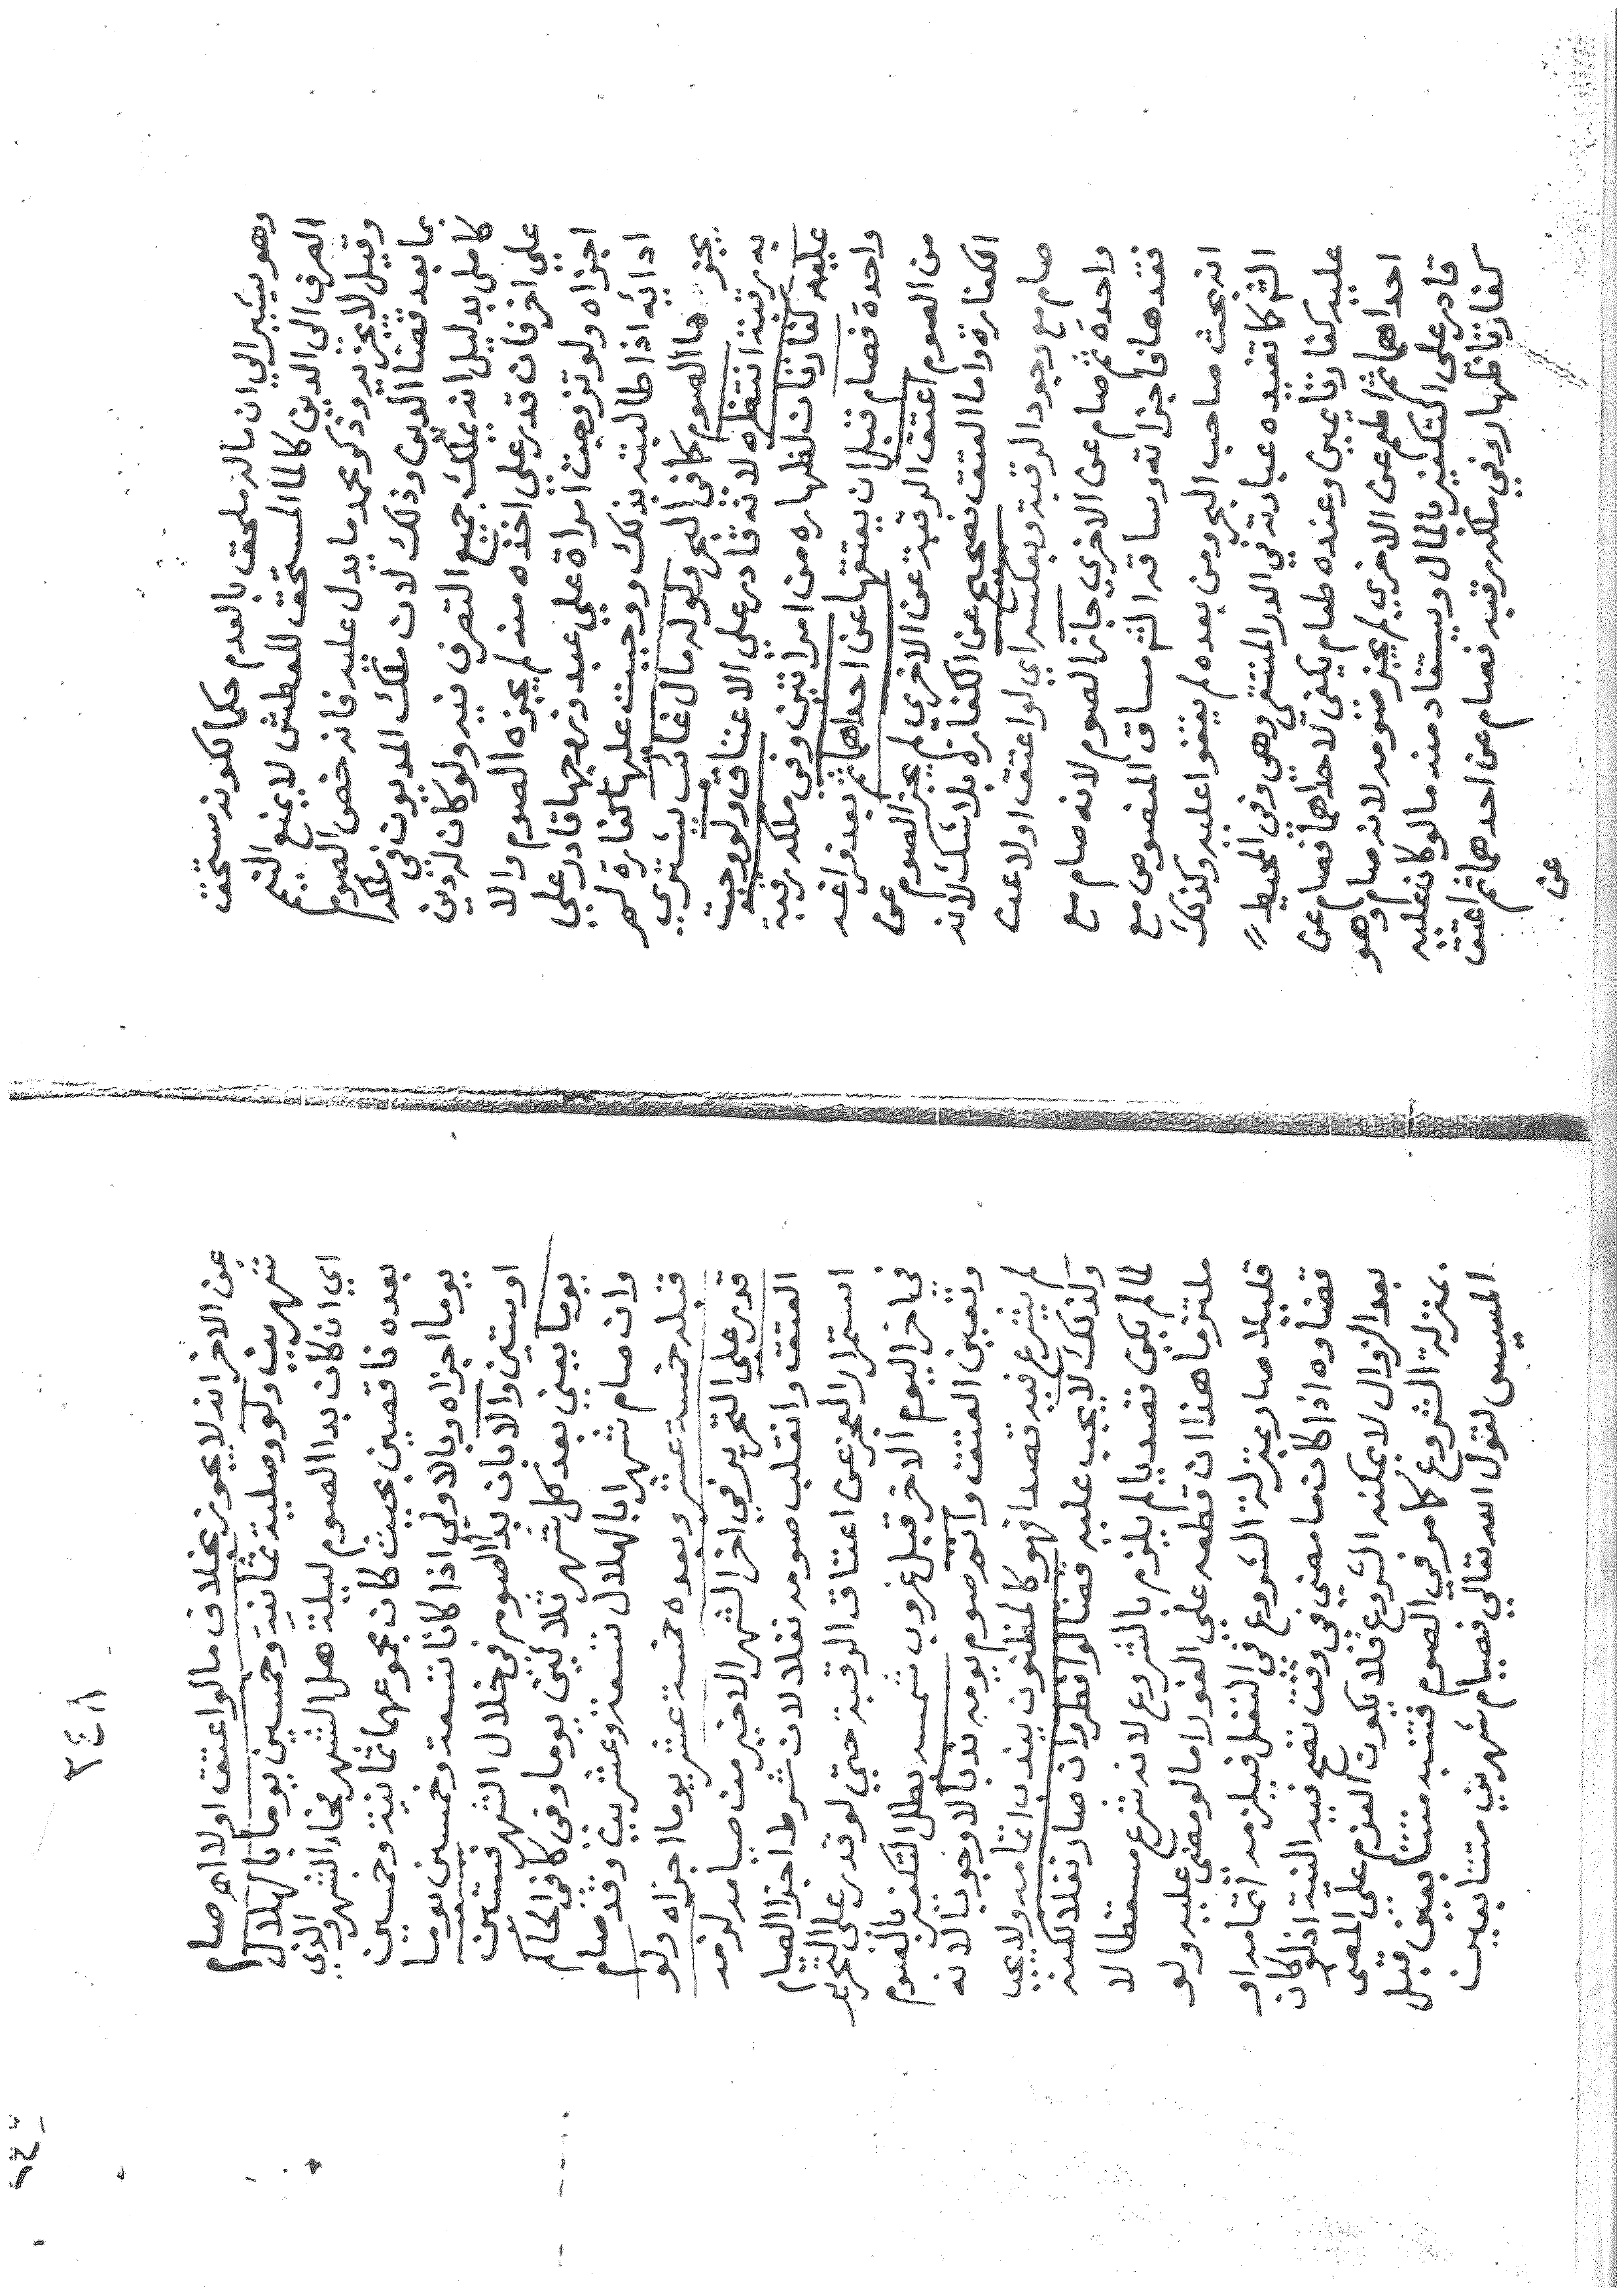 وهو يشير الي ان ماله ملحق بالعدم حكما لكونه مستحق
الصرف الى الدين كالما المستحق للعطش لا يمنع التيمم
وقيل لا يجزيه وذكر محمد ما يدل عليه فانه خص الصوم
بما بعد قضا الدين وذلك لان ملك المديون في ملكه
كاملي بدليل انه يملك جميع التصرف فيه ولو كان له دين
على اخر فان قدر على اخذه منه لم يجزه الصوم والا
اجزاه ولو تزوجت امراة على عبد وزوجها قادر على
ادايه اذا طالبته بذلك ووجبت عليها كفارة لم
يجز لها الصوم كما في البحر ولو له مال غائب يشتري
به رقبة انتظره لانه قادر على الاعتاق ولو وجبت
عليه كفارتان لظهاره من امراتين وفي ملكه رقبة
واحدة فصام قبل ان يعتقها عن احداهما ثم بعد فراغه
من الصوم اعتق الرقبة عن الاخري لم يجز الصوم عن
الكفارة واما العتق فصحيح عن الكفارة بلا شك لانه
صام مع وجود الرقبة وبعكسه اي لو اعتق اولا عن
واحدة ثم صام عن الاخري جاز الصوم لانه صام مع
فقدها فاجزاته وساقه الش مساق المنصوص مع
انه بحث صاحب البحر ومن بعده لم يعتنوا عليه وكذلك
الش كما تفيده عبارته في الدر المنتقى وهي وفي المحيط
عليه كفارتا يمين وعنده طعام يكفي لاحداهما فصام عن
احداهما ثم اطعم عن الاخري لم يجز صومه لانه صام وهو
قادر على التكفير بالمال ويستفاد منه ما لو كان عليه
كفارتا ظهار وفي ملكه رقبة فصام عن احدهما ثم اعتق
عن
٢٤٨
عن الاخر انه لا يجوز بخلاف ما لو اعتق اولا اه صام
شهرين ولو وصلية ثمانية وخمسين يوما بالهلال
اي ان كان بدا الصوم ليلة هل الشهر فجاء الشهر والذي
بعده ناقصين بحيث كان مجموعهما ثمانية وخمسين
يوما اجزاه وبالاولي اذا كانا تسعة وخمسين يوما
او ستين والا بان بدا الصوم في خلال الشهر فستين
يوما يعني بعد كل شهر ثلاثين يوما وفي كافي الحاكم
وان صام شهرا بالهلال تسعة وعشرين وقد صام
قبله خمسة عشر وبعده خمسة عشر يوما اجزاه ولو
قدر على التحرير في اخر الشهر الاخير من صيامه لزمه
العتق وانقلب صومه نفلا لان شرط اجزا الصيام
استمرار العجز عن اعتاق الرقبة حتى لو قدر على التحرير
في اخر اليوم الاخر قبل غروب شمسه بطل التكفير بالصوم
وتعين العتق واتم صوم يومه ندبا لا وجوبا لانه
لم يشرع فيه قصدا فهو كالمظنون يندب اتمامه ولا يجب
ولذلك لا يجب عليه قضا لو افطر وان صار نفلا لكنه
لما لم يكن قصديا لم يلزم بالشروع لانه شرع مسقطا لا
ملتزما هذا ان قطعه علي الفور اما لو مضي عليه ولو
قليلا صار بمنزلة الشروع في النفل فيلزمه اتمامه او
قضاوه اذا كان ما مضي في وقت تصح فيه النية اذ لو كان
بعد الزوال لا يمكنه الشروع فلا يكون العزم على المضي
بمنزلة الشروع كما مر في الصوم فتنبه متتابعين قبل
المسيس لقول الله تعالي فصيام شهرين متتابعين